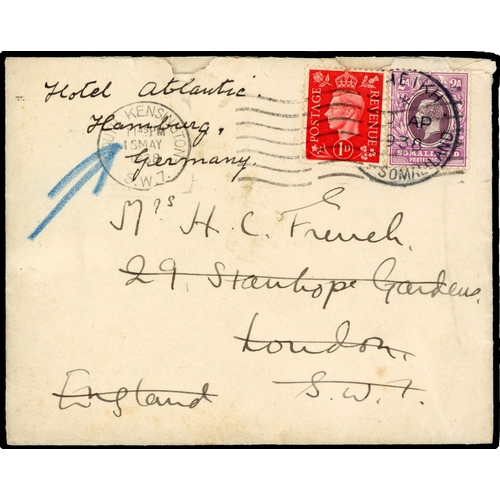 Hotel Atlantic.
Hamburg,
Germany.
KENSINGTON
15MAY
S.W.7.
POSTAGE
REVENUE
1D
2A
2A
SOMALILAND
PROTECTORATE
AP
SOMALILAND
Mrs H. C. French.
29 Stanhope Gardens
London.
England S.W.7.